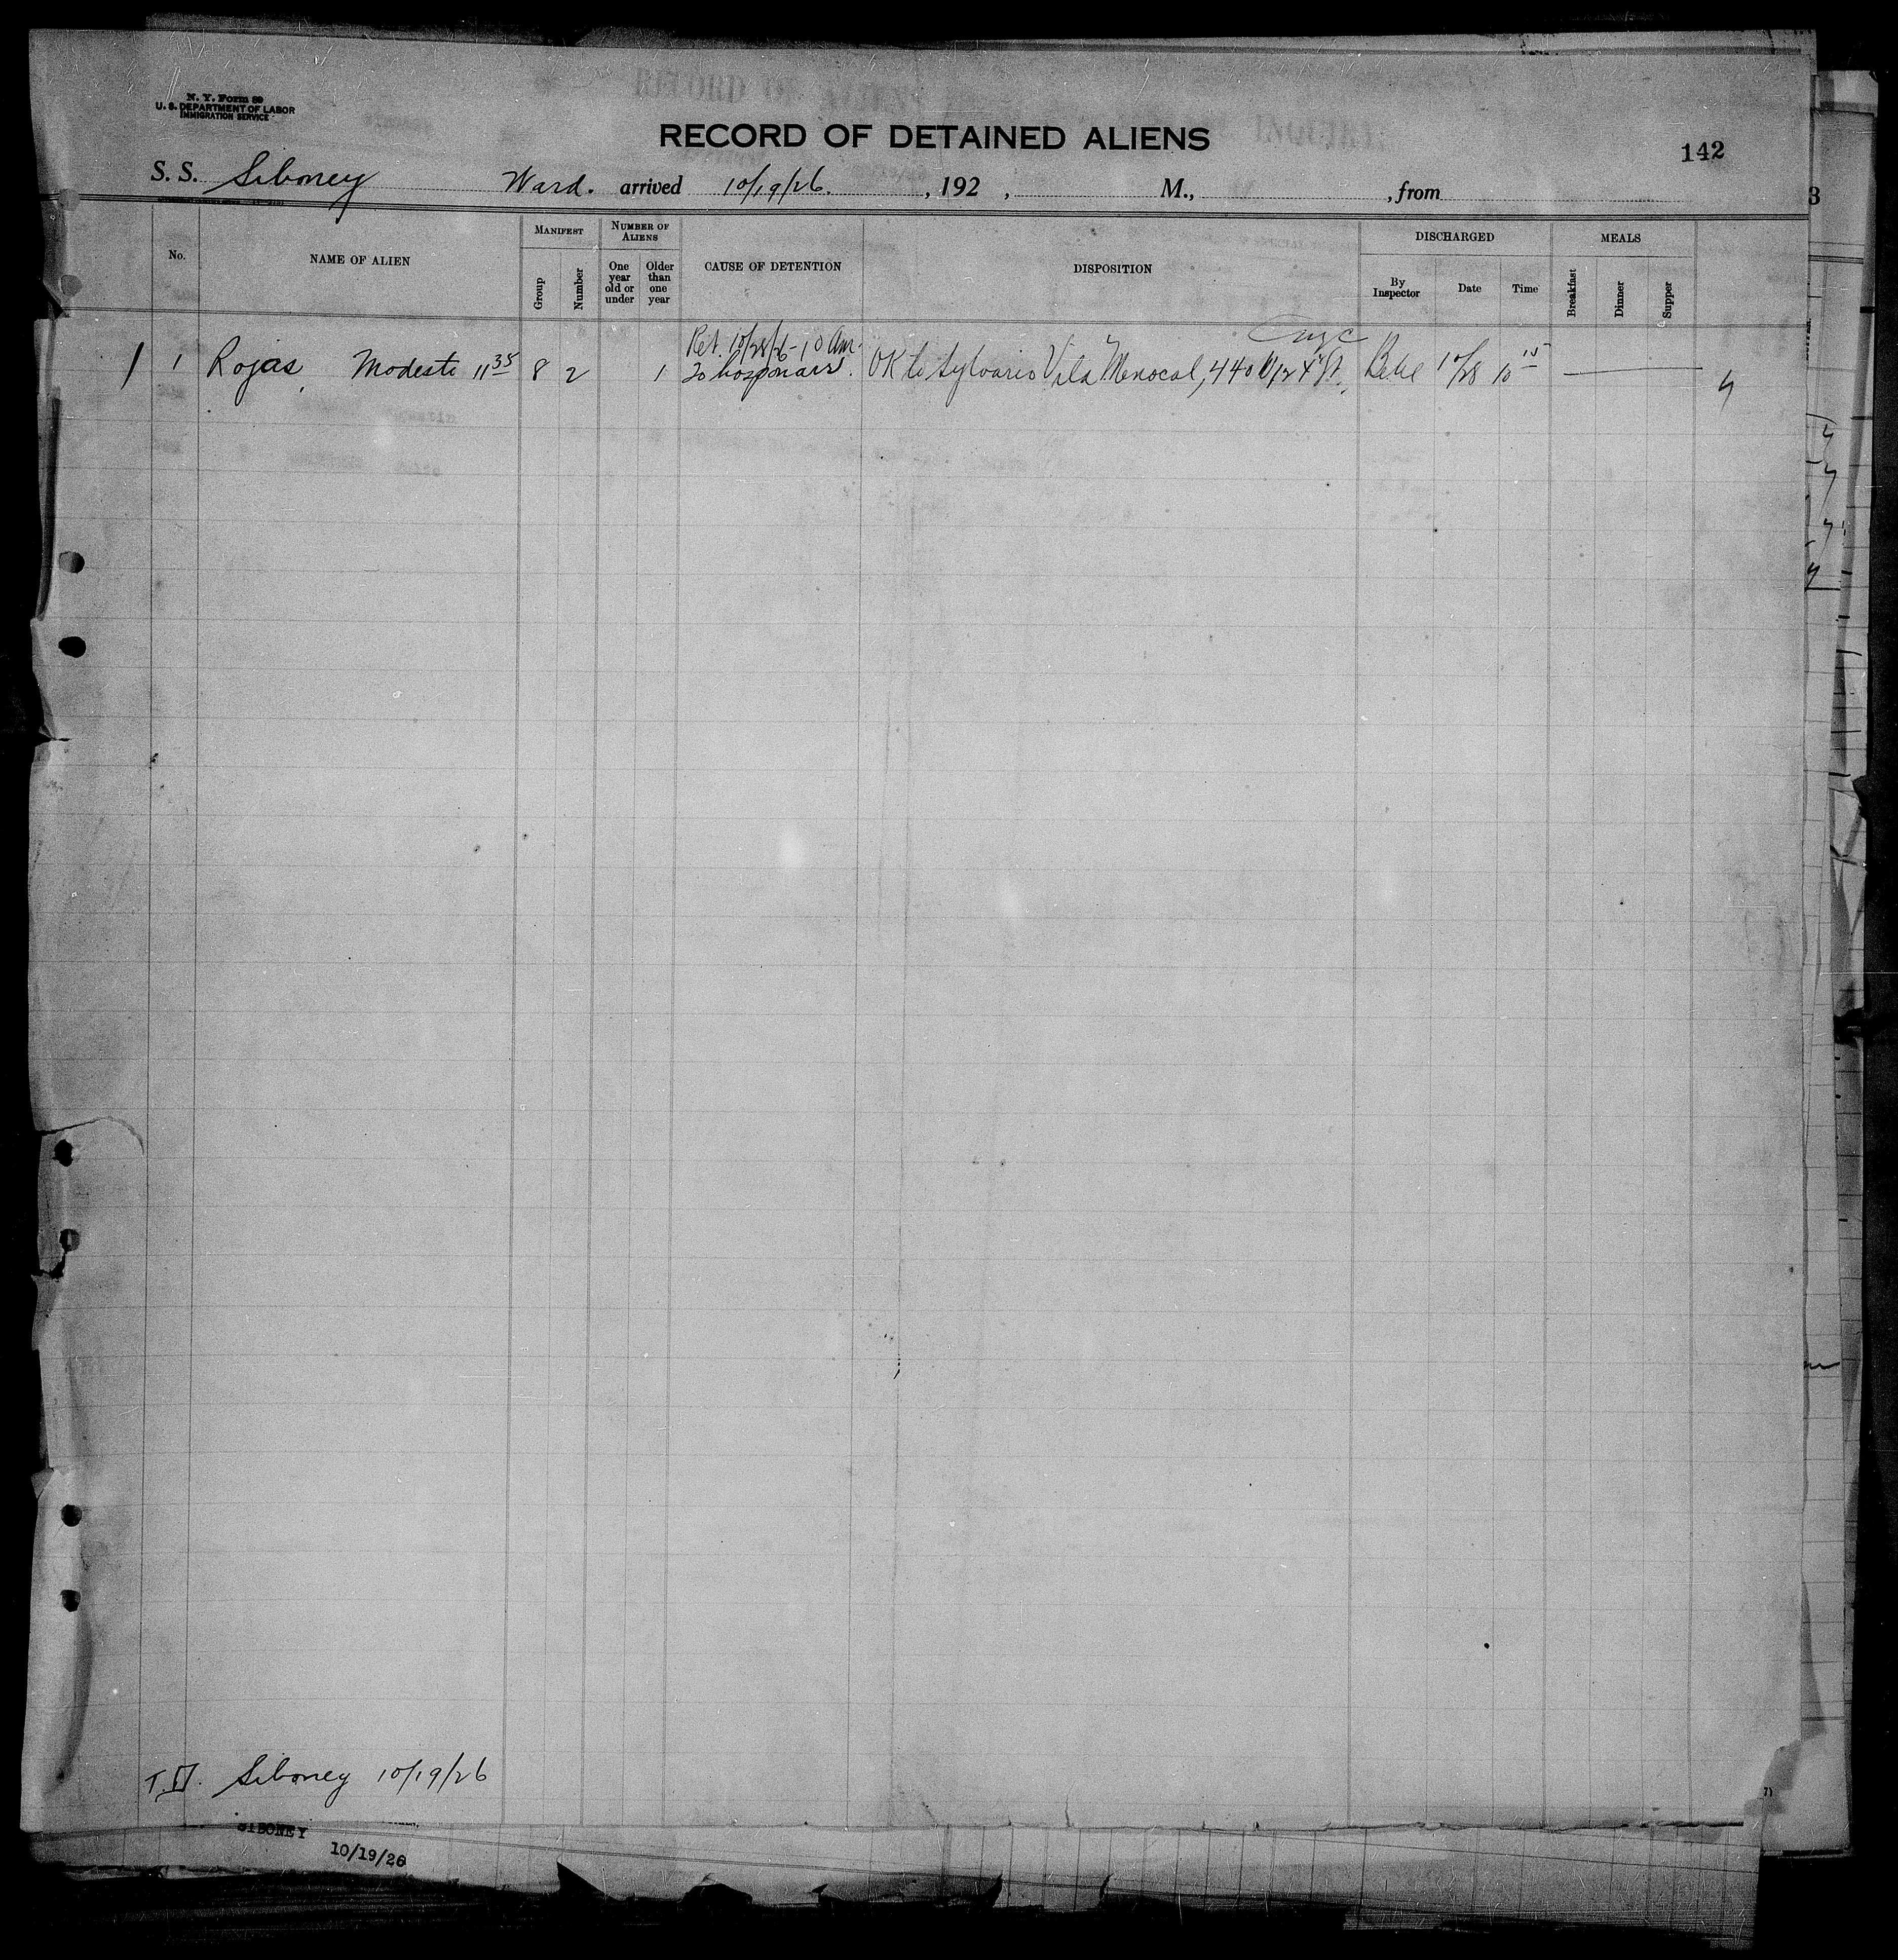 N. Y. Form 89
U. S. DEPARTMENT OF LABOR
IMMIGRATION SERVICE
RECORD OF DETAINED ALIENS
142
S. S. Siboney Ward. arrived 10/19/26. , 192 , M., , from
3
No.
NAME OF ALIEN
MANIFEST
Group
Number
NUMBER OF ALIENS
One year old or under
Older than one year
CAUSE OF DETENTION
DISPOSITION
DISCHARGED
By Inspector
Date
Time
MEALS
Breakfast
Dinner
Supper
Ret. 10/28/26 - 10 Am.
1 1 Rojas, Modesto 11 35 8 2 1 To hosp OK to Vila Menocal, 440 10/28 10 15
T. Siboney 10/19/26
SIBONEY
10/19/26